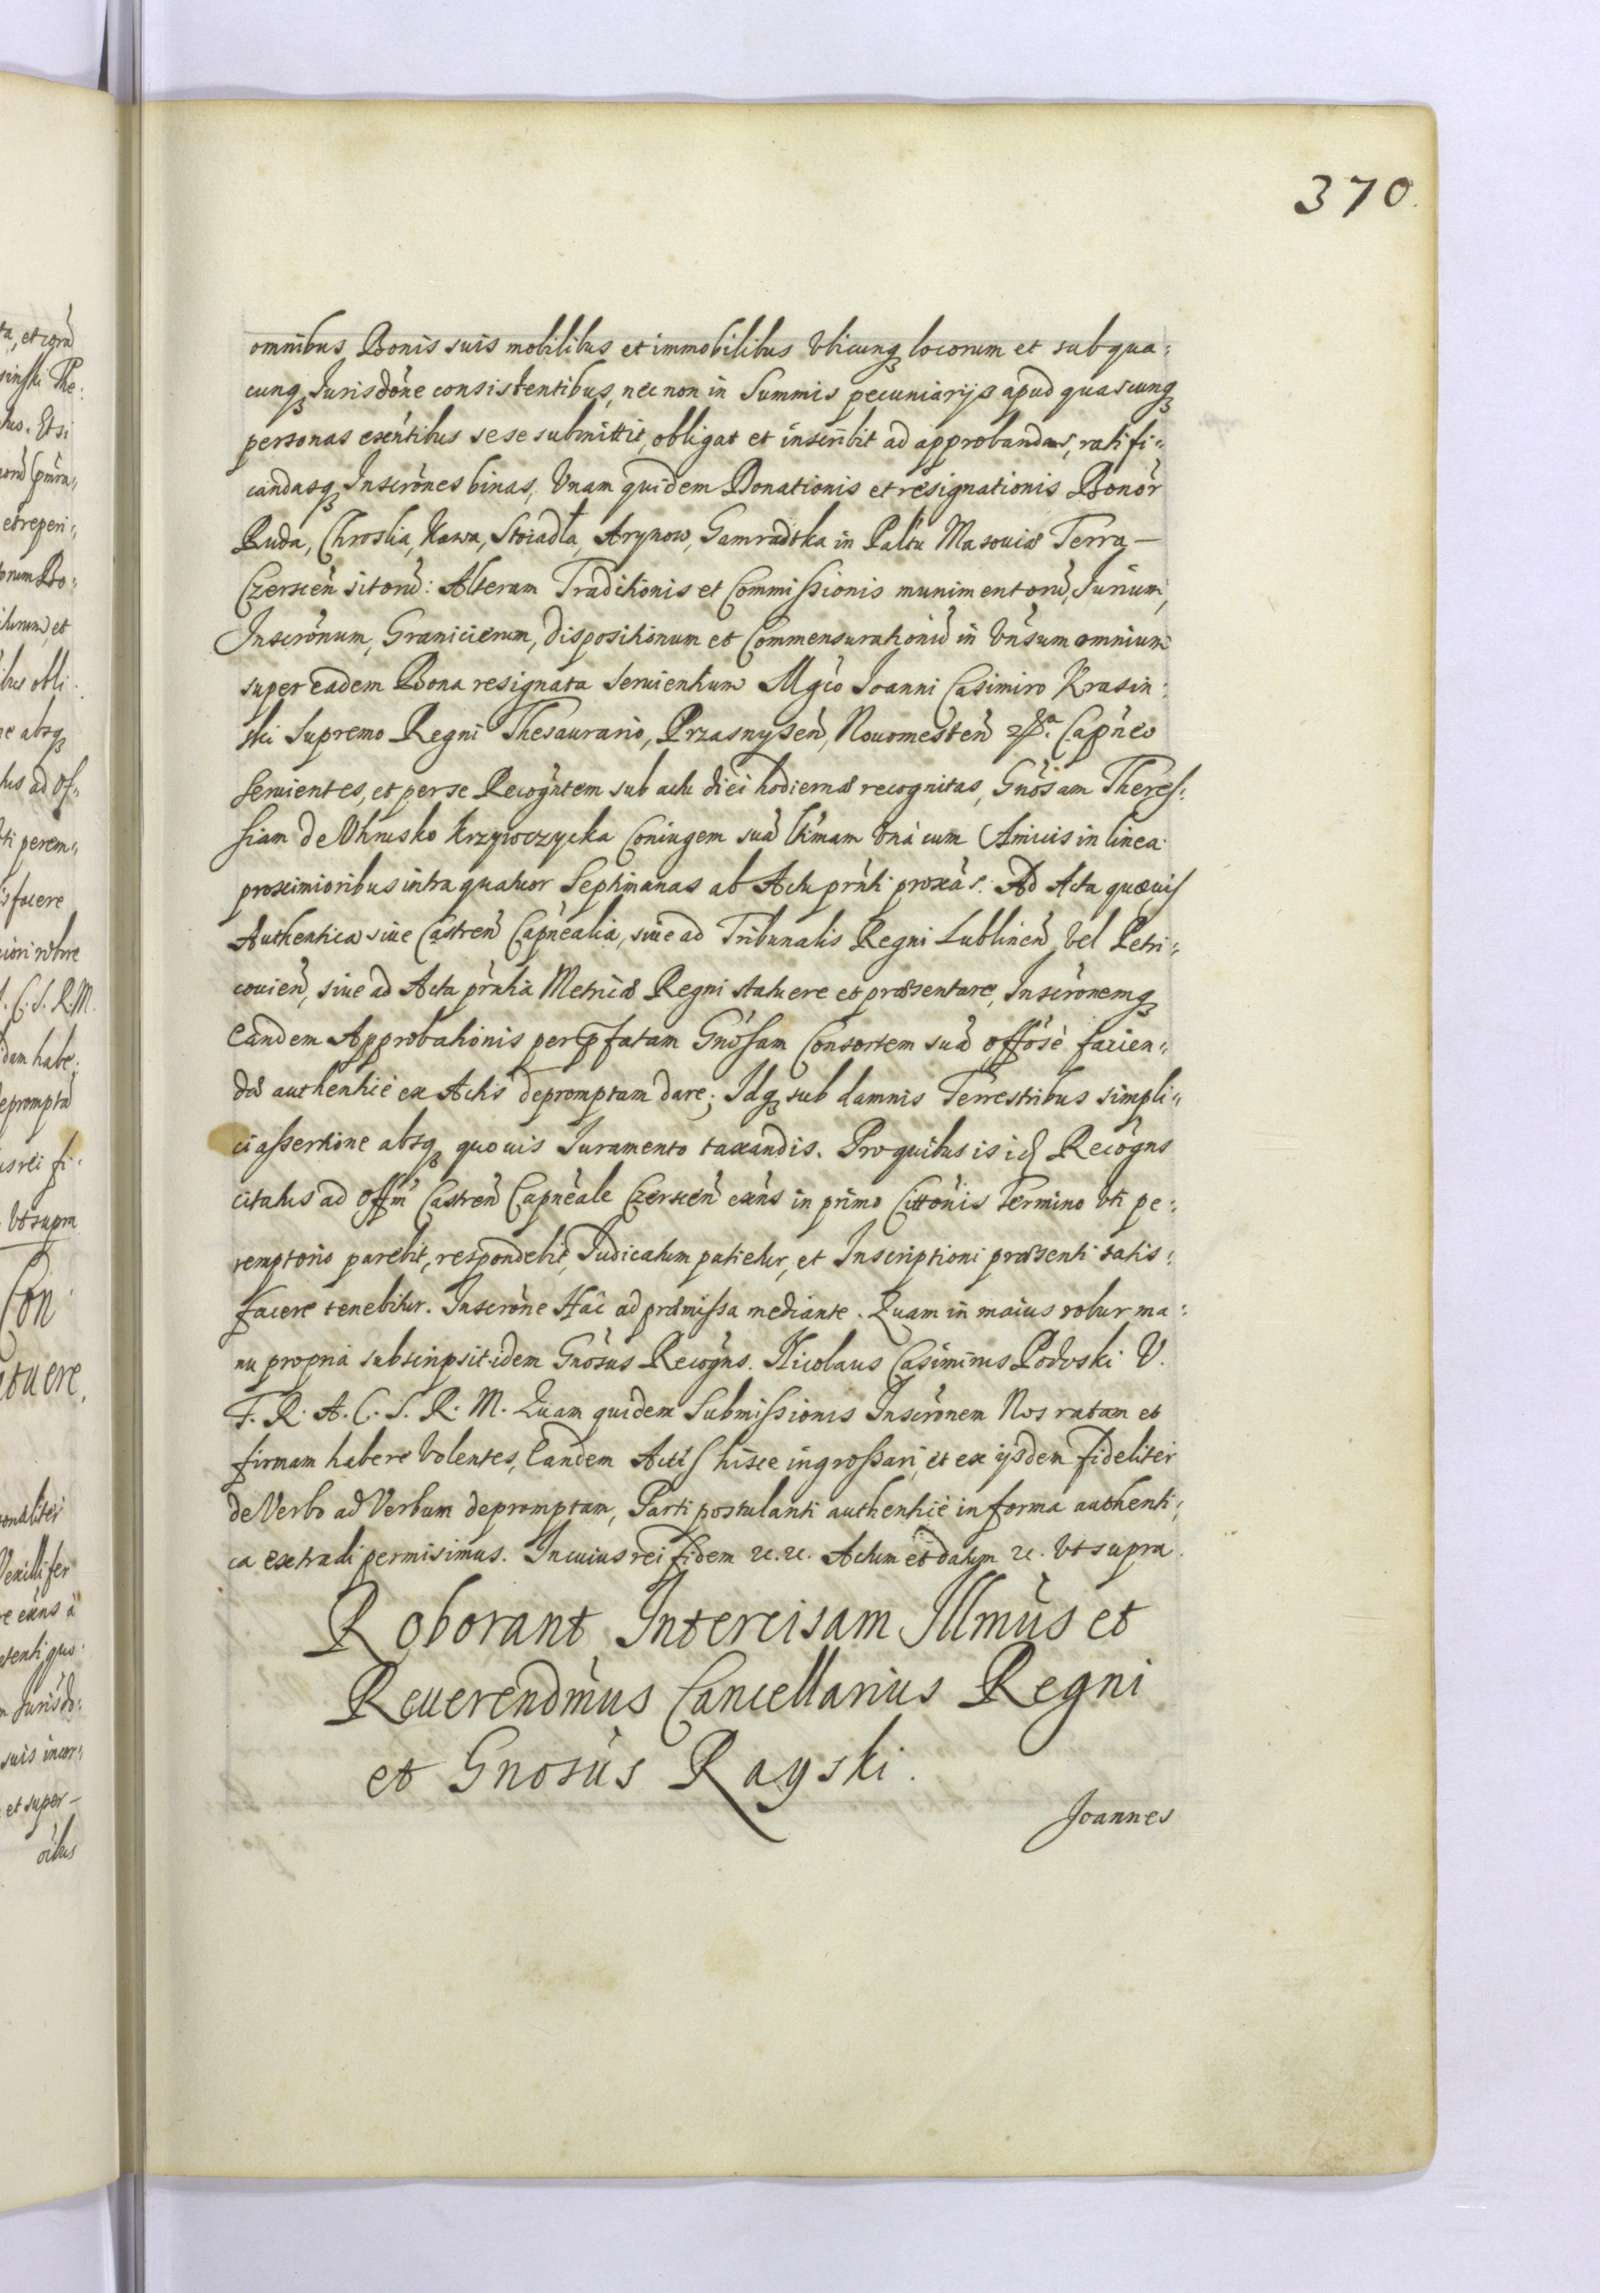 370.
omnibus Bonis suis mobilibus et immobilibus Vbicunq locorum et sub qua:
cunq Jurisdõne consistentibus, nec non in Summis pecuniarijs apud quascunq
personas exẽntibus sese submittit, obligat et inscribit ad approbandas, ratifi:
candasq Inscrõnes binas, Vnam quidem Donationis et resignationis Bonor̃
Ruda, Chroslia, Kawa, Stoiadła, Arynow, Gamradtka in Paltu Masouiæ Terra
Czerscen̄ sitorũ: Alteram Traditionis et Commissionis munimentorũ, Jurium,
Inscrõnum, Granicierum, dispositionum et Commensurationũ in Vn̄sum omnium
super eadem Bona resignata seruientium Mgco Joanni Casimiro Krasin:
ski Supremo Regni Thesaurario, Przasnysen̄, Nouomesten̄ Capn̄eo
seruientes, et per se Recogn̄tem sub actu diei hodiernæ recognitas, Gn̄osam Theres:
siam de Ohrusko Krzywczycka Coniugem suã Vnà cum Amicis in linea
proximioribus intra quatuor Septimanas ab Actu prn̄ti proxas. Ad Acta quæuis
Authentica siue Castren̄ Capn̄ealia, siue ad Tribunalis Regni Lublinen̄ Vel Petri:
couien̄, siue ad Acta prn̄tia Metricæ Regni statuere et præsentare, Inscrõnemq
Eandem Approbationis per p̄fatam Gn̄osam Consortem suã offõsè facien:
dã authenticè ex Actis depromptam dare; Idq sub damnis Terrestribus simpli:
ci assertione absq quouis Juramento taxandis. Pro quibus is id Recogns
citatus ad Offm̄ Castren̄ Capn̄eale Czerscen̄ exn̄s in primo Cittõnis Termino Vti pe:
remptorio parebit, respondebit, Judicatum patietur, et Inscriptioni præsenti satis:
facere tenebitur. Inscrõne Hac ad præmissa mediante. Quam in maius robur ma:
nu propria subscripsit idem Gn̄osus Recogns. Nicolaus Casimirus Podoski V.
T. R. A. C. S. R. M. Quam quidem Submissionis Inscrõnem Nos ratam et
firmam habere Volentes, Eandem Actis hisce ingrossari, et ex ijsdem fideliter
de Verbo ad Verbum depromptam, Parti postulanti authenticè in forma authenti:
ca extradi permisimus. In cuius rei fidem &c. &c. Actum et datum &c. Vt supra.
Roborant Intercisam Illmus et
Reuerendmus Cancellarius Regni
et Gnosus Rayski.
Joannes